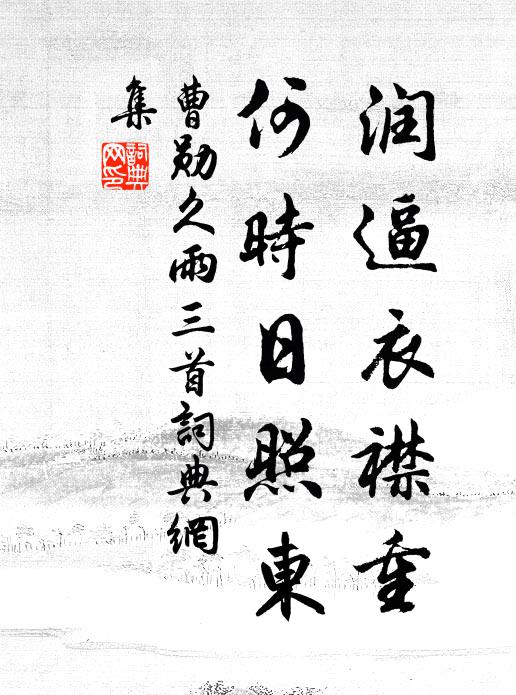 润逼衣襟重
何時日照東
曹勛久雨三首詞典網
集
詞典
网印